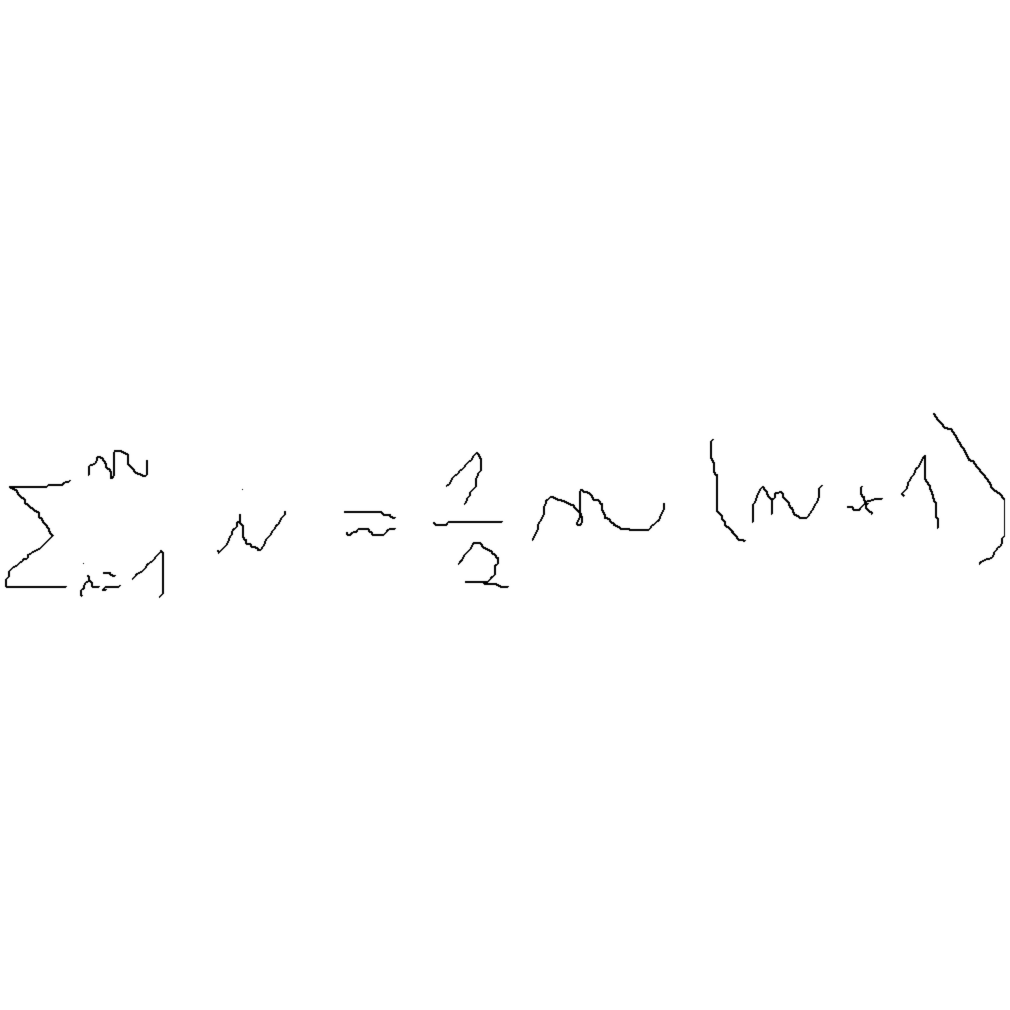 \sum_{i=1}^{n} i = \frac{1}{2} n (n+1)